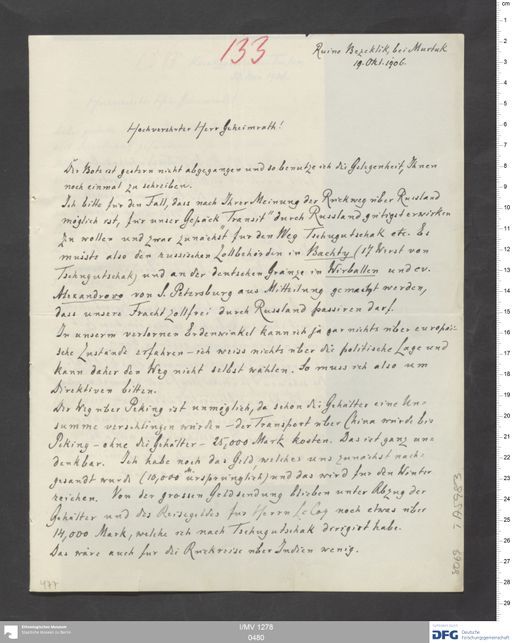 133
Ruine Bezeklik, bei Murtuk
19. Okt. 1906.
Hochverehrter Herr Geheimrath!
Der Bote ist gestern nicht abgegangen und so benutze ich die Gelegenheit, Ihnen
noch einmal zu schreiben.
Ich bitte für den Fall, dass nach Ihrer Meinung der Rückweg über Russland
möglich ist, für unser Gepäck "Transit" durch Russland gütigst erwirken
zu wollen und zwar zunächst für den Weg Tschugutschak etc. Es
müsste also den russischen Zollbehörden in Bachty (17 Wirst von
Tschugutschak) und an der deutschen Gränze in Wirballen und ev.
Alexandrowo von S. Petersburg aus Mitteilung gemacht werden,
dass unsere Fracht zollfrei durch Russland passieren darf.
In unserm verlornen Erdenwinkel kann ich ja gar nichts über europäi-
sche Zustände erfahren - ich weiss nichts über die politische Lage und
kann daher den Weg nicht selbst wählen. So muss ich also um
Direktiven bitten.
Der Weg über Peking ist unmöglich, da schon die Gehälter eine Un-
summe verschlingen würden - der Transport über China würde bis
Peking - ohne die Gehälter - 25,000 Mark kosten. Das ist ganz un-
denkbar. Ich habe noch das Geld, welches uns zunächst nach-
gesandt wurde (10,000 M. ursprünglich) und das wird für den Winter
reichen. Von der grossen Geldsendung blieben unter Abzug der
Gehälter und des Reisegeldes für Herrn Le Coq noch etwas über
14,000 Mark, welche ich nach Tschugutschak dirigiert habe.
Das wäre auch für die Rückreise über Indien wenig.
477
Ethnologisches Museum
Staatliche Museen zu Berlin
I/MV 1278
0480
DFG Deutsche
Forschungsgemeinschaft
cm